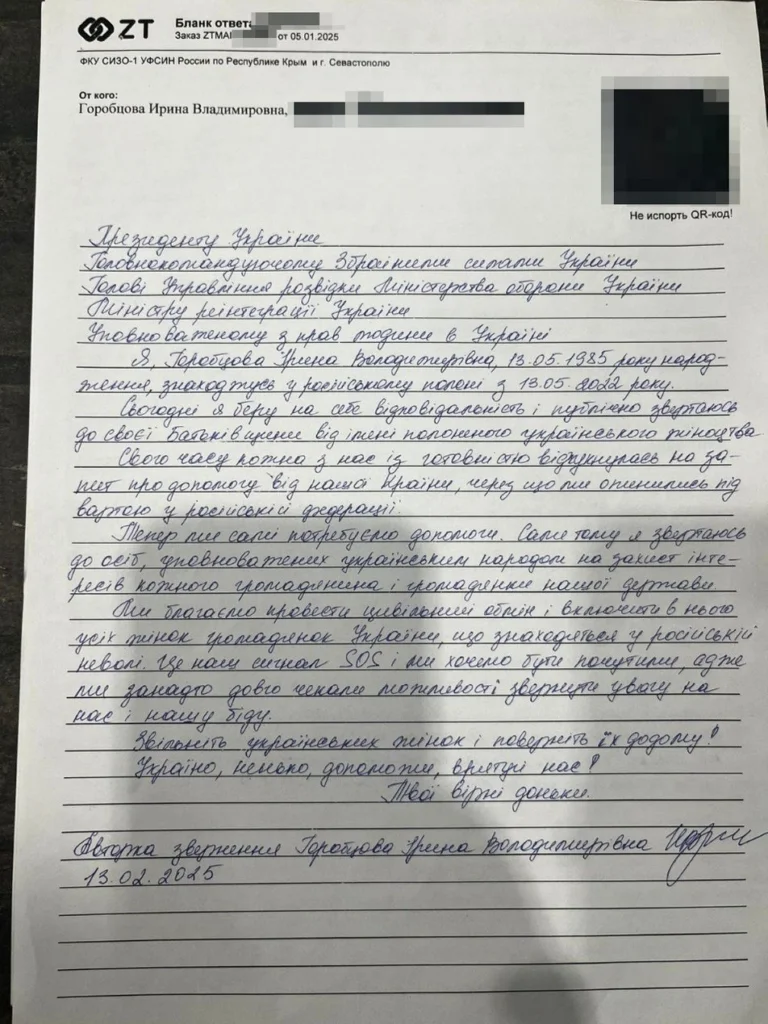 ZT
Бланк ответа
Заказ ZTMAI от 05.01.2025
ФКУ СИЗО-1 УФСИН России по Республике Крым и г. Севастополю
От кого:
Горобцова Ирина Владимировна,
Не испорть QR-код!
Президенту України
Головнокомандуючому Збройними силами України
Голові Управління розвідки Міністерства оборони України
Міністру реінтеграції України
Уповноваженому з прав людини в Україні
Я, Горобцова Ірина Володимирівна, 13.05.1985 року народ-
ження, знаходжусь у російському полоні з 13.05.2022 року.
Сьогодні я беру на себе відповідальність і публічно звертаюсь
до своєї Батьківщини від імені полоненого українського жіноцтва
Свого часу кожна з нас із готовністю відгукнулась на за-
пит про допомогу від нашої країни, через що ми опинились під
вартою у російській федерації.
Тепер ми самі потребуємо допомоги. Саме тому я звертаюсь
до осіб, уповноважених українським народом на захист інте-
ресів кожного громадянина і громадянки нашої держави.
Ми благаємо провести цивільний обмін і включити в нього
усіх жінок громадянок України, що знаходяться у російській
неволі. Це наш сигнал SOS і ми хочемо бути почутими, адже
ми занадто довго чекали можливості звернути увагу на
нас і нашу біду.
Звільніть українських жінок і поверніть їх додому!
Україно, ненько, допоможи, врятуй нас!
Твої вірні доньки.
Авторка звернення Горобцова Ірина Володимирівна
13.02.2025